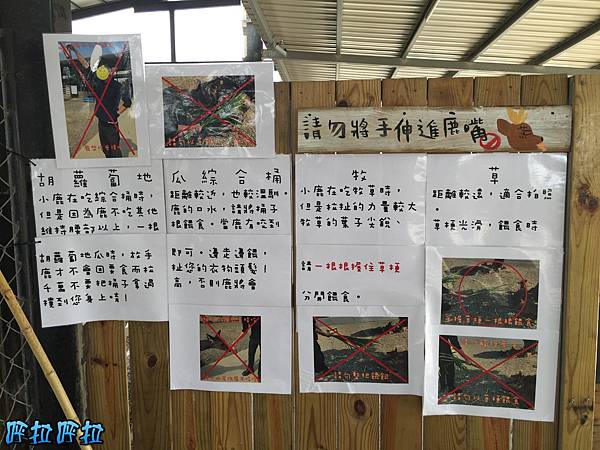 請勿將手伸進鹿嘴
胡蘿蔔地瓜綜合桶
小鹿在吃綜合桶時，距離較近，也較溫馴。
但是因為鹿不吃其他鹿的口水，請將桶子
維持腰部以上，一根根餵食，當鹿在吃到
胡蘿蔔地瓜時，放手即可。邊走邊餵，
鹿才不會因要食而拉扯您的衣物頭髮！
千萬不要把桶子拿過高，否則鹿將會
撲到您身上唷！
牧草
小鹿在吃牧草時，距離較遠，適合拍照。
但是拉扯的力量較大。
牧草的葉子尖銳、草梗光滑，餵食時
請一根根握住草梗
分開餵食。
請勿整把餵飼
呼拉呼拉